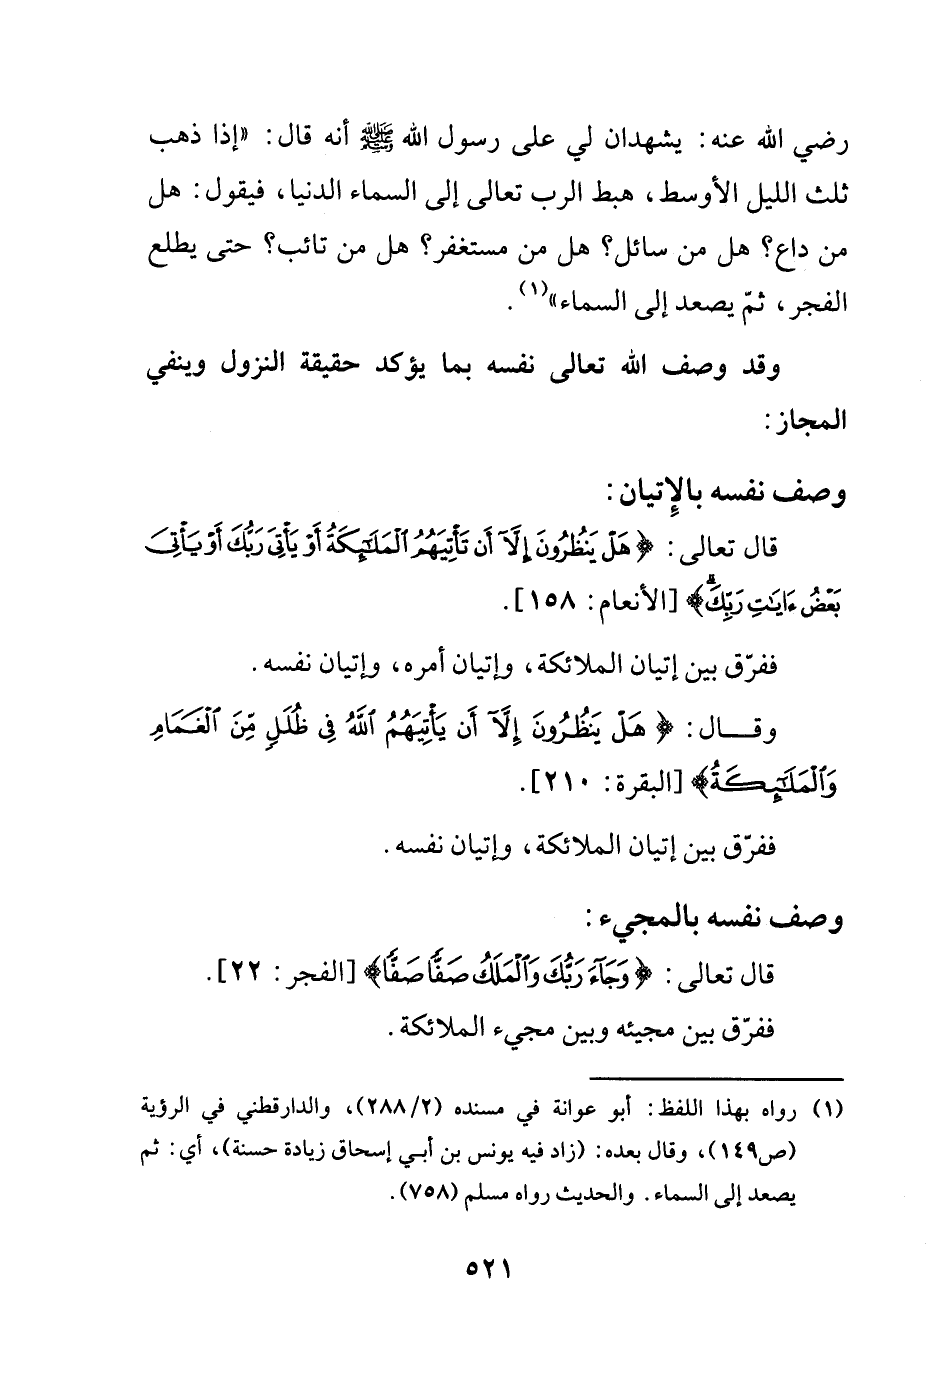 رضي الله عنه: يشهدان لي على رسول الله ﷺ أنه قال: «إذا ذهب
ثلث الليل الأوسط، هبط الرب تعالى إلى السماء الدنيا، فيقول: هل
من داع؟ هل من سائل؟ هل من مستغفر؟ هل من تائب؟ حتى يطلع
الفجر، ثمّ يصعد إلى السماء»(١).
وقد وصف الله تعالى نفسه بما يؤكد حقيقة النزول وينفي
المجاز:
وصف نفسه بالإتيان:
قال تعالى: ﴿هَلْ يَنظُرُونَ إِلَّآ أَن تَأْتِيَهُمُ ٱلْمَلَـٰٓئِكَةُ أَوْ يَأْتِىَ رَبُّكَ أَوْ يَأْتِىَ
بَعْضُ ءَايَـٰتِ رَبِّكَ ۗ﴾ [الأنعام: ١٥٨].
ففرّق بين إتيان الملائكة، وإتيان أمره، وإتيان نفسه.
وقـــال: ﴿هَلْ يَنظُرُونَ إِلَّآ أَن يَأْتِيَهُمُ ٱللَّهُ فِى ظُلَلٍ مِّنَ ٱلْغَمَامِ
وَٱلْمَلَـٰٓئِكَةُ﴾ [البقرة: ٢١٠].
ففرّق بين إتيان الملائكة، وإتيان نفسه.
وصف نفسه بالمجيء:
قال تعالى: ﴿وَجَآءَ رَبُّكَ وَٱلْمَلَكُ صَفًّا صَفًّا﴾ [الفجر: ٢٢].
ففرّق بين مجيئه وبين مجيء الملائكة.
(١) رواه بهذا اللفظ: أبو عوانة في مسنده (٢/٢٨٨)، والدارقطني في الرؤية
(ص١٤٩)، وقال بعده: (زاد فيه يونس بن أبي إسحاق زيادة حسنة)، أي: ثم
يصعد إلى السماء. والحديث رواه مسلم (٧٥٨).
٥٢١